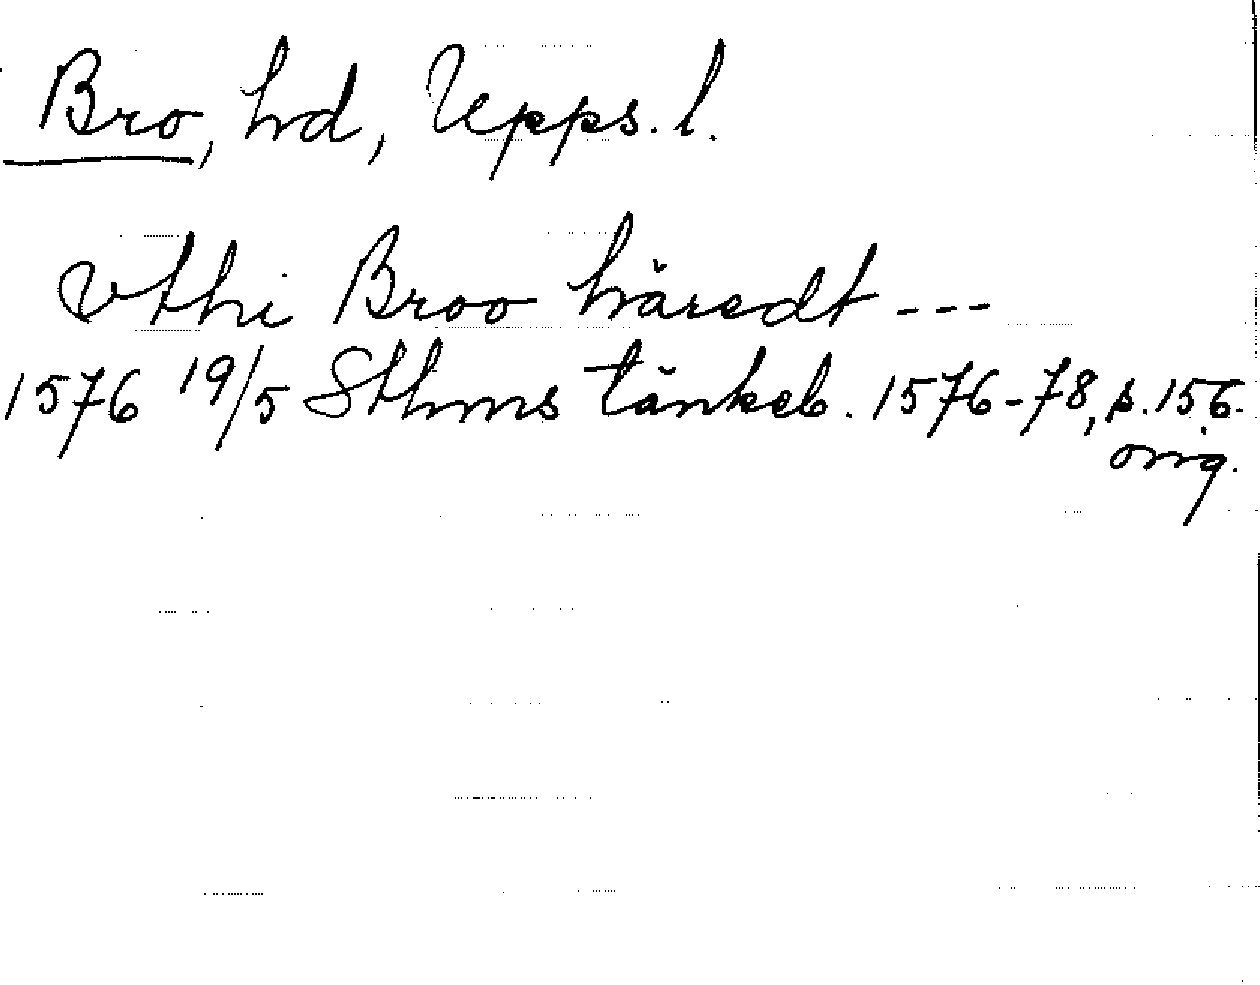 Bro, hd, Upps. l.
vthi Broo häredt ---
1576 19/5 Sthms tänkeb. 1576-78, s. 156.
orig.